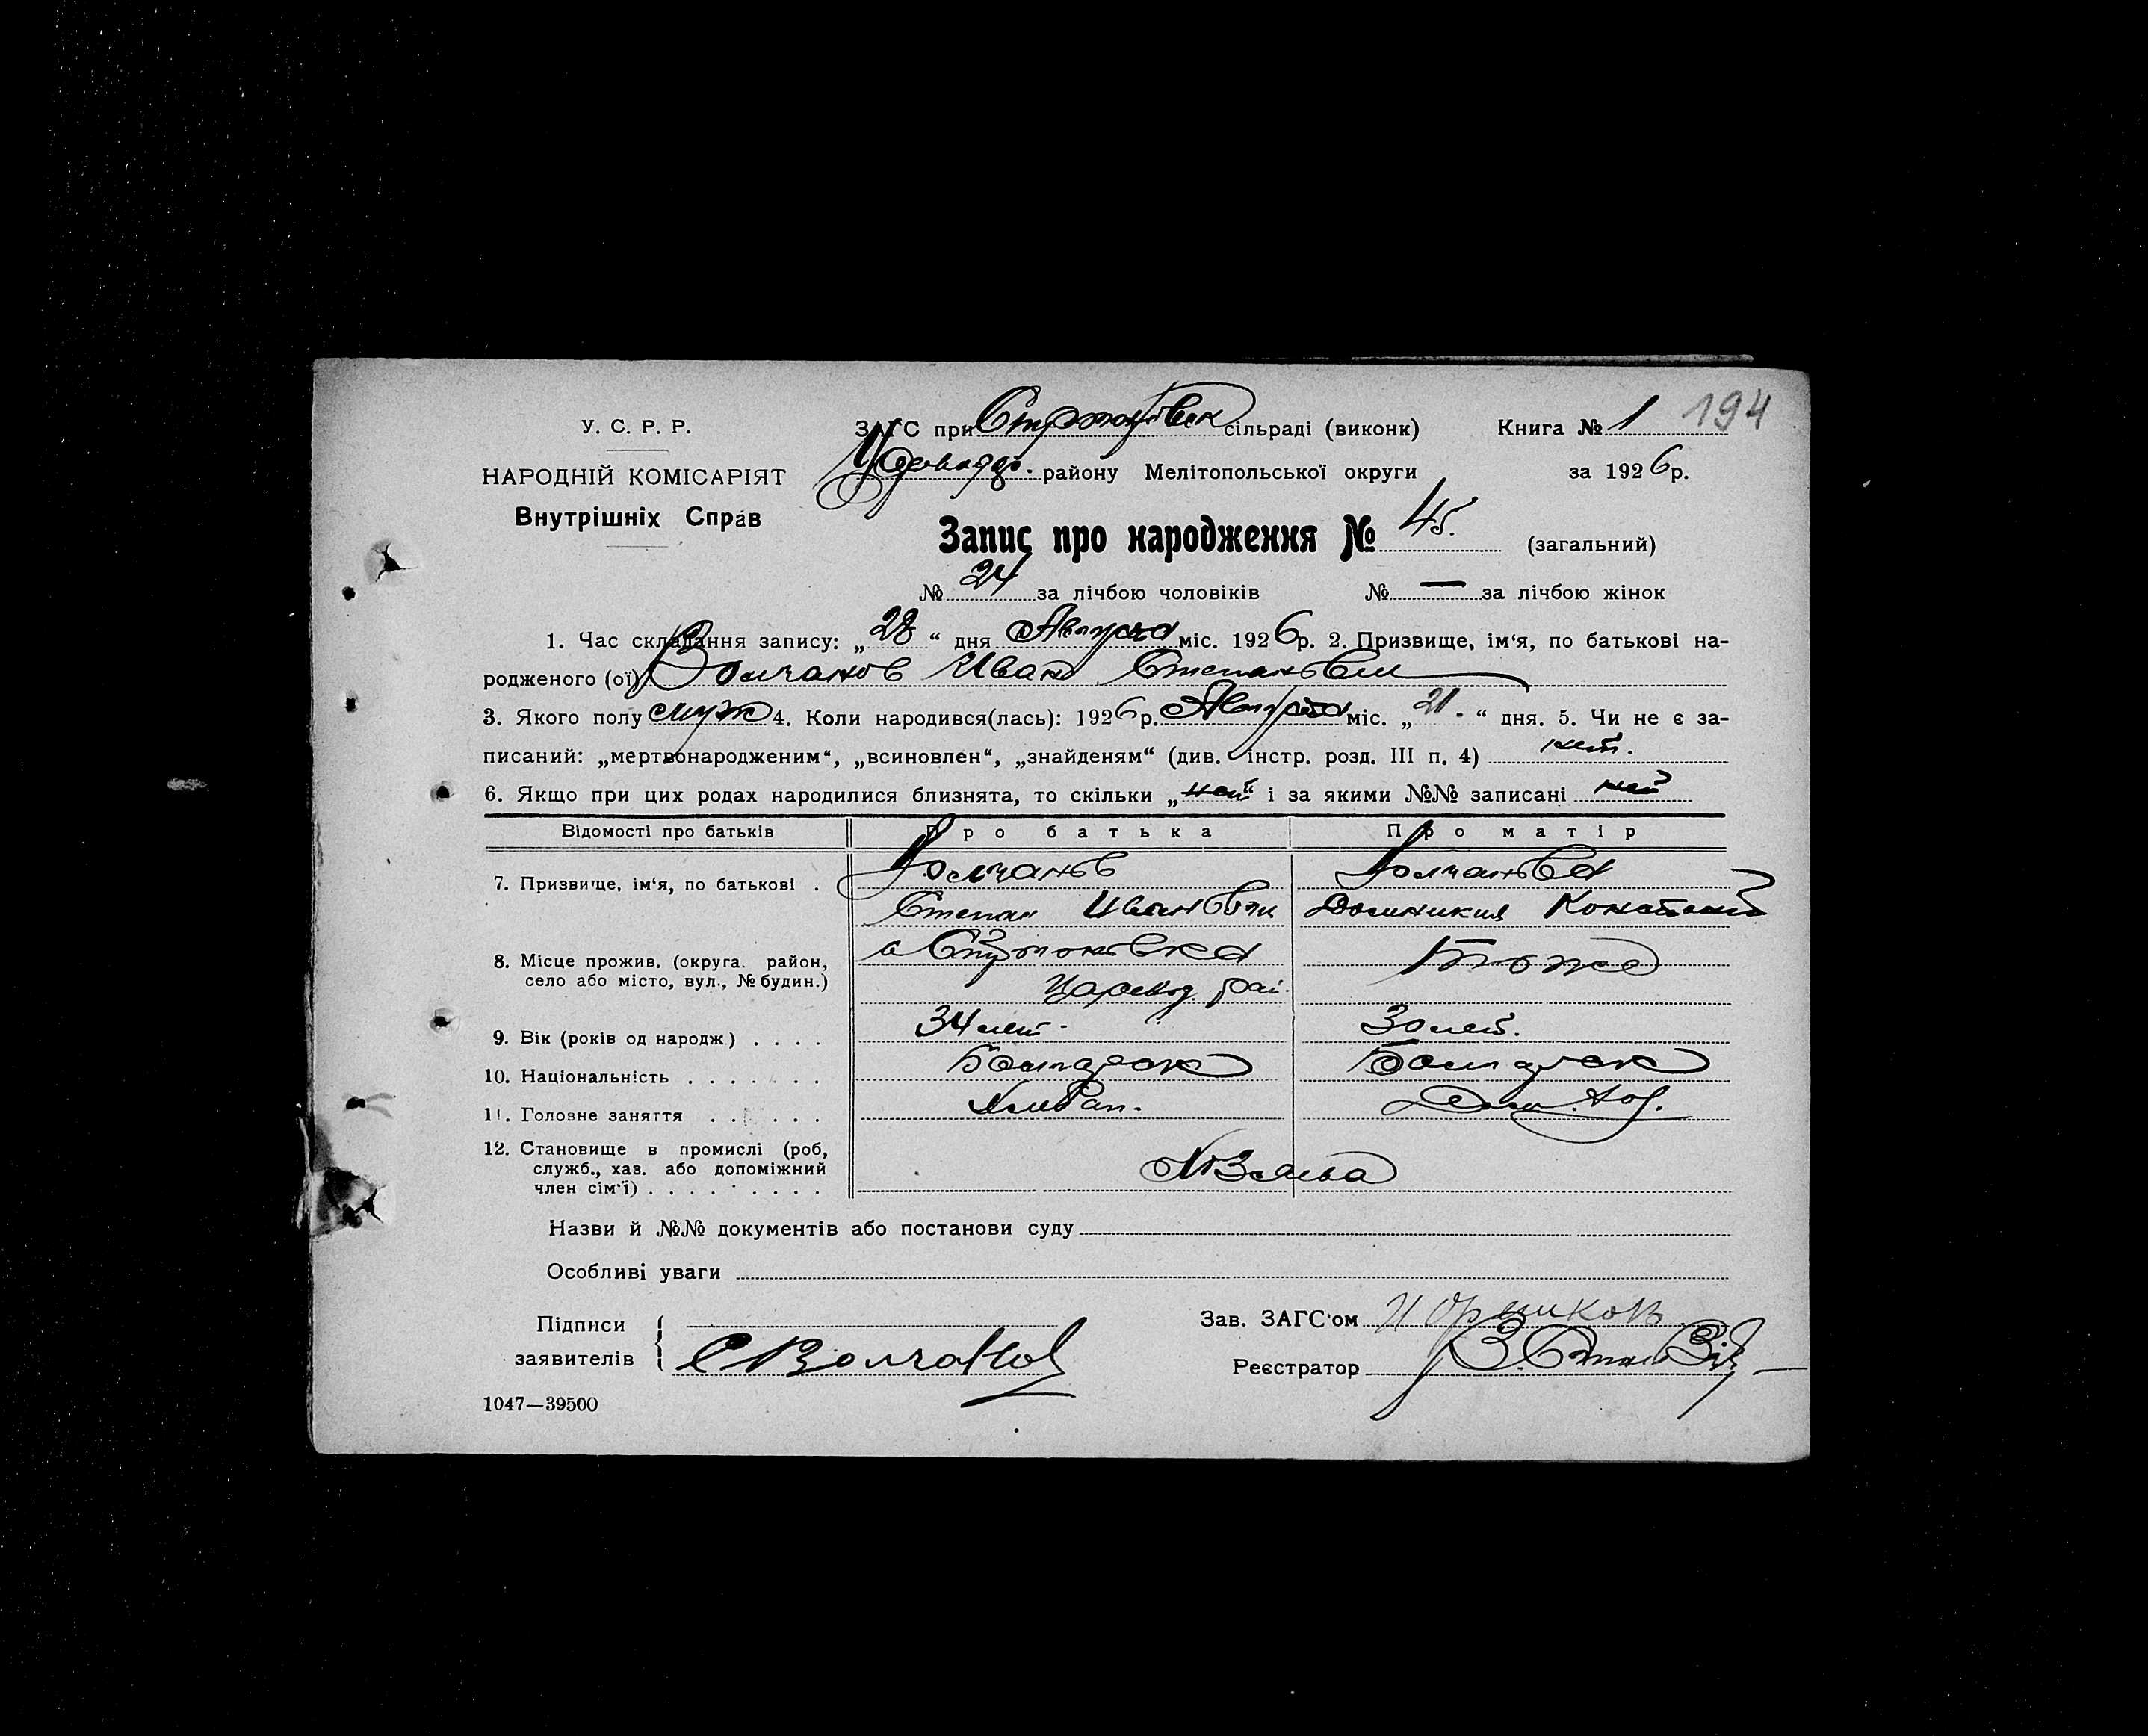 194
У. С. Р. Р.
ЗАГС при сільраді (виконк) Книга № 1
НАРОДНІЙ КОМІСАРІЯТ
району Мелітопольської округи за 1926 р.
Внутрішніх Справ
Запис про народження № 45. (загальний)
№ 24 за лічбою чоловіків № — за лічбою жінок
1. Час складання запису: „28“ дня Августа міс. 1926 р. 2. Призвище, ім‘я, по батькові на-
родженого (ої) Волчанов Иван Степанович
3. Якого полу муж 4. Коли народився(лась): 1926 р. Августа міс. „21.“ дня. 5. Чи не є за-
писаний: „мертвонародженим“, „всиновлен“, „знайденям“ (див. інстр. розд. III п. 4) нет.
6. Якщо при цих родах народилися близнята, то скільки „нет“ і за якими №№ записані нет
Відомості про батьків Про батька Про матір
7. Призвище, ім‘я, по батькові . Волчанов Волчанова
Степан Иванович Домникия Констант
8. Місце прожив. (округа. район,
село або місто, вул., № будин.) Тоже
Царевод. рай.
9. Вік (років од народж) . . . . 34 лет. 30 лет.
10. Національність . . . . . . . Болгарск Болгарск
11. Головне заняття . . . . . . Хлебап. Дом. хоз.
12. Становище в промислі (роб,
служб., хаз. або допоміжний
член сім‘ї) . . . . . . . . .
Назви й №№ документів або постанови суду
Особливі уваги
Підписи
заявителів С Волчанов
Зав. ЗАГС‘ом
Реєстратор
1047—39500